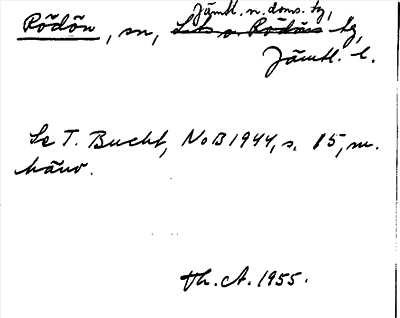 Jämtl. n. doms. tg,
Rödön, sn, Lits o. Rödöns tg,
Jämtl. l.
Se T. Bucht, NoB 1944, s. 85, m.
hänv.
Th. A. 1955.